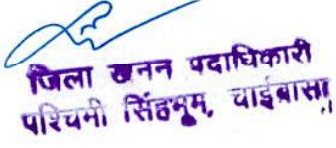 जिला खनन पदाधिकारी
पश्चिमी सिंहभूम, चाईबासा